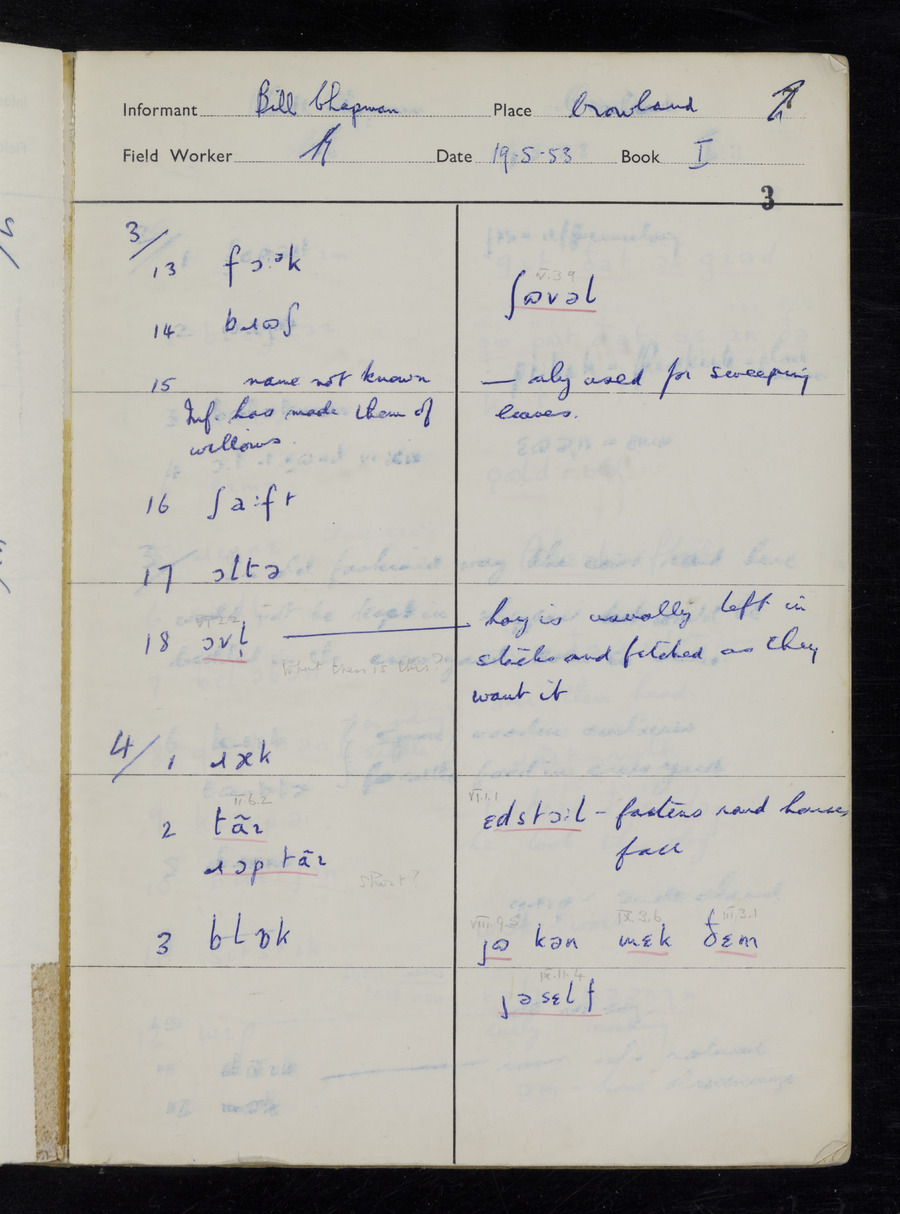 Informant Bill Chapman Place Crowland
Field Worker Date 19.5.53 Book I
3
3/
13 fɔːᵊk
14 bɹɷʃ
15 name not known
Inf. has made them of
willows.
16 ʃaːft
17 ɔltə
18 ɔvl̩
VI.2.2
What then is this?
4/
1 ɹæk
II.6.2
2 tãɪ
ɹɔptãɪ
short?
3 blɒk
V.3.9
ʃɷvəl
— only used for sweeping
leaves.
hay is usually left in
stacks and fetched as they
want it
VI.1.1
ɛdstɔːl – fastens round horses
face
VIII.9.5 IX.3.6 III.3.1
jɷ kən mɛk ðɛm
IX.11.4
jəsɛlf